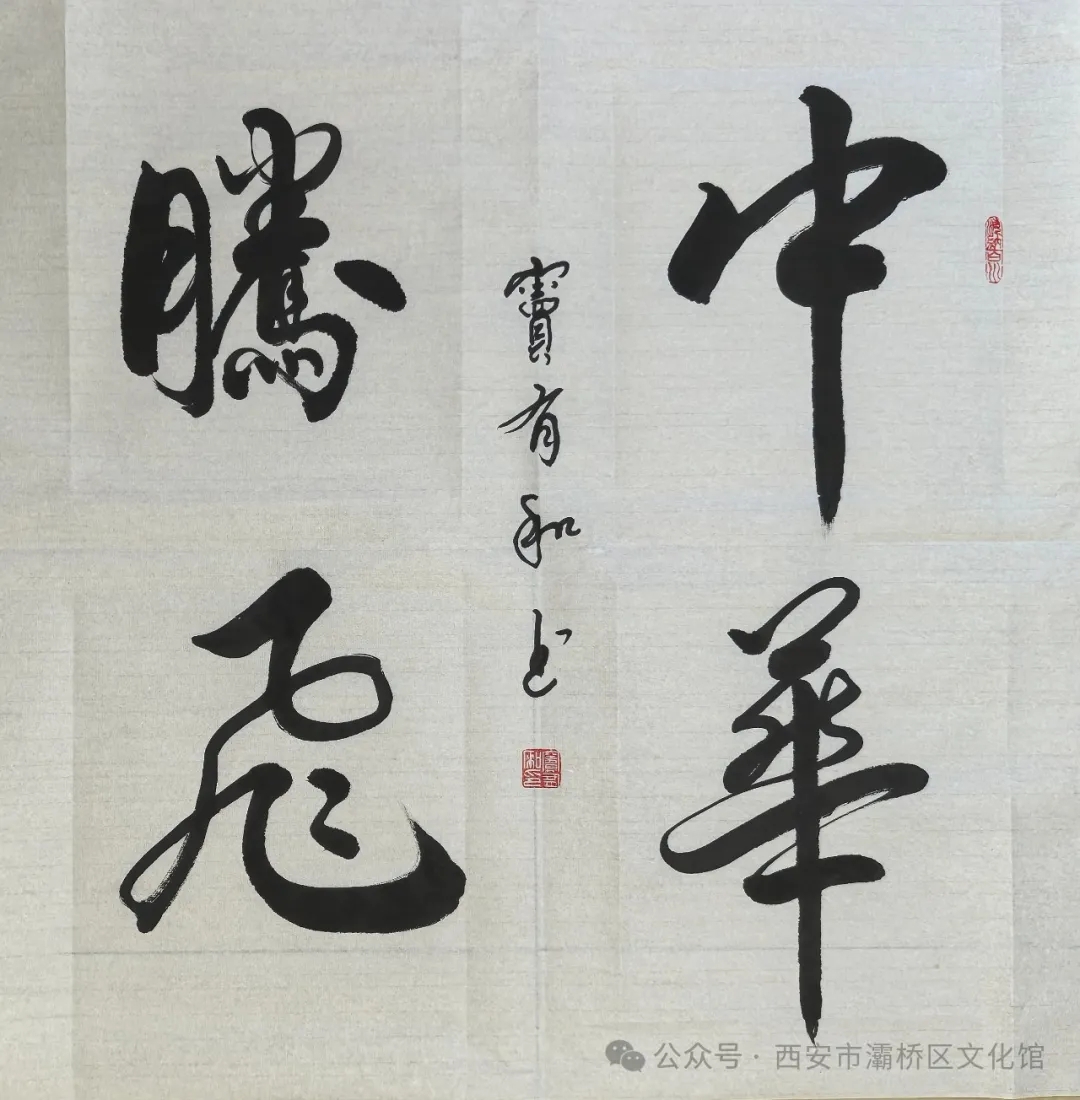 中華
騰飛
竇有和书
公众号·西安市灞桥区文化馆